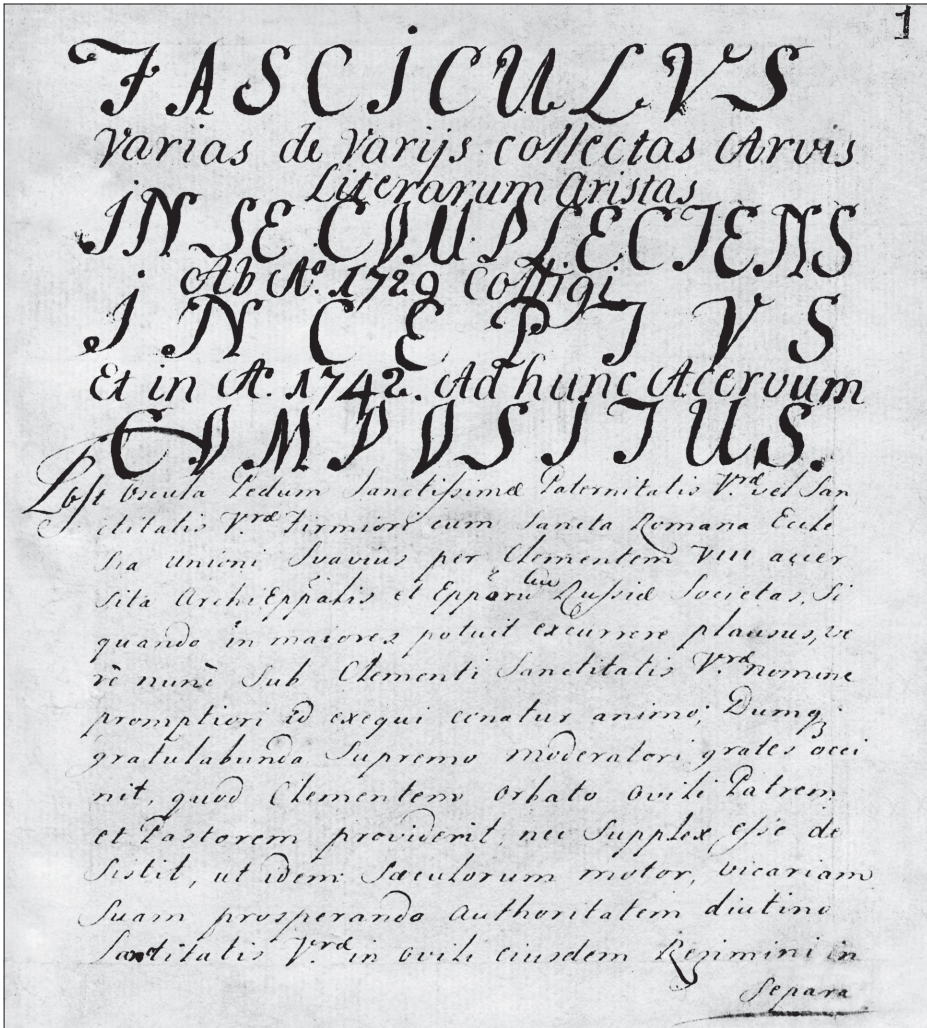 1
FASCICULVS
Varias de Varijs collectas Arvis
Literarum Aristas
IN SE COMPLECTENS
Ab Aº. 1729 Colligi
INCEPTVS
Et in A. 1742. Ad hunc Acervum
COMPOSITUS.
Post Oscula Pedum Sanctissimæ Paternitatis V.ræ vel San
ctitatis V.ræ Firmiori cum Sancta Romana Eccle
sia Unioni Suavius per Clementem VIII accer
sita ArchiEppalis et Epporū Russiæ Societas, Si
quando in maiores potuit excurrere plausus, ve
rè nunc Sub Clementi Sanctitatis V.ræ nomine
promptiori id exequi conatur animo; Dumq3
gratulabunda Supremo moderatori grates occi
nit, quod Clementem Orbato Ovili Patrem
et Pastorem providerit, nec Supplex esse de
Sistit, ut idem Sæculorum motor, vicariam
Suam prosperando Authoritatem diutino
Sanctitatis V.ræ in ovili eiusdem Regimini in
Separa